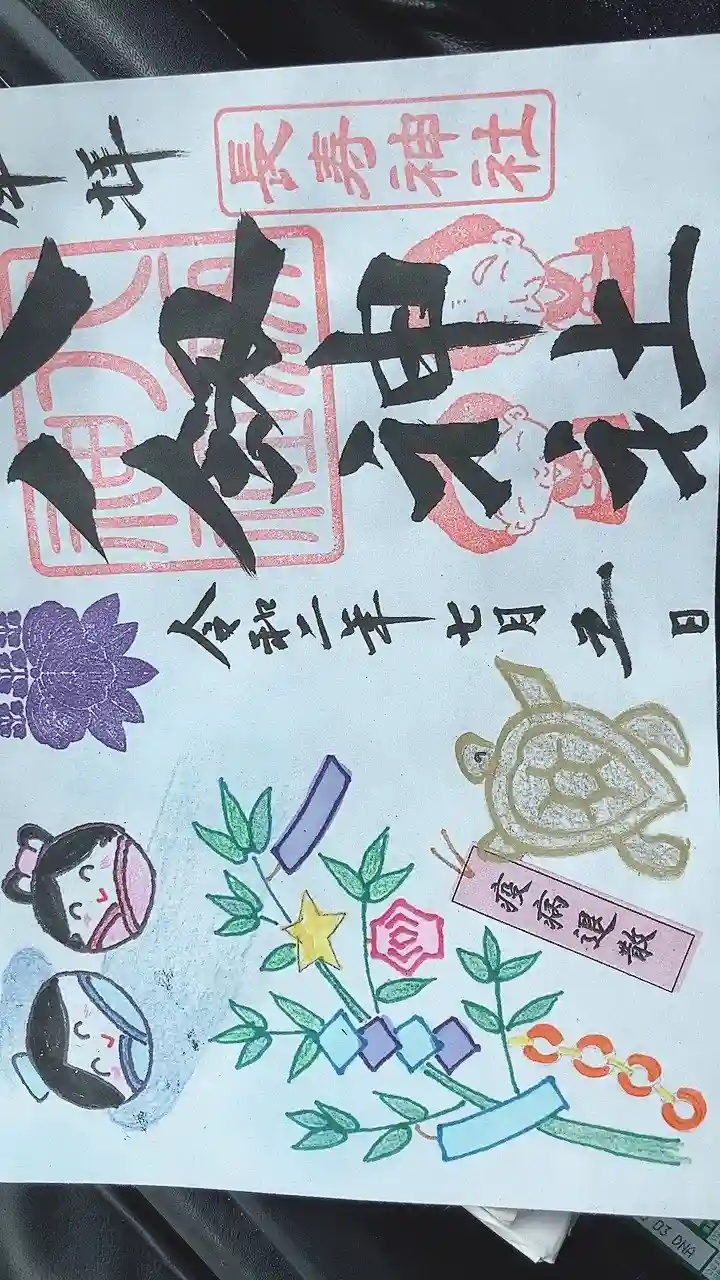 奉拝
長寿神社
八釼神社
令和二年七月五日
疫病退散
03 DNA